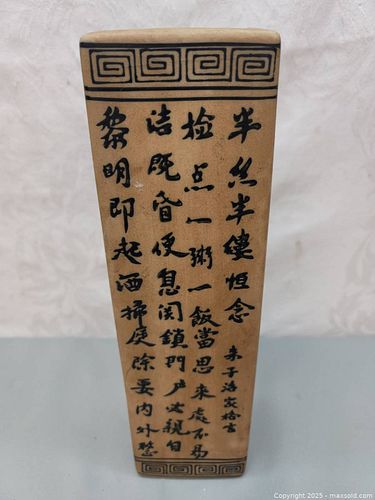 黎明即起洒掃庭除要内外整
洁既昏便息関鎖門户必親自
检点一粥一飯當思来處不易
半丝半縷恒念
朱子治家格言
Copyright 2025 - maxsold.com